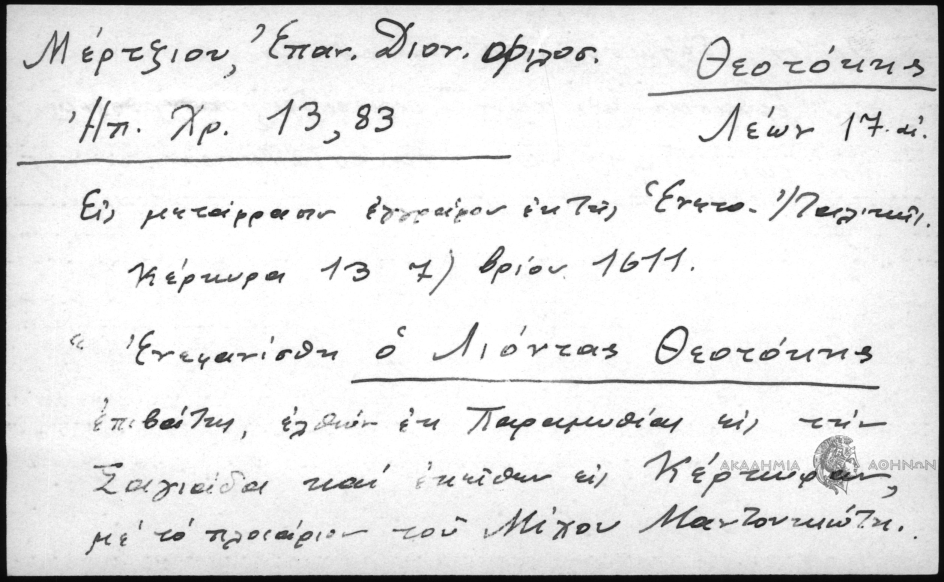 Μέρτζιου, Ἐπαν. Διον. φιλοσ.
Θεοτόκης
Ἠπ. Χρ. 13, 83
Λέων 17. αἰ.
Εἰς μετάφρασιν ἐγγράφου ἐκ τῆς Ἑνετο-Ἰταλικῆς.
Κέρκυρα 13 7)βρίου 1611.
“ Ἐνεφανίσθη ὁ Λιόντας Θεοτόκης
ἐπιβάτης, ἐλθών ἐκ Παραμυθίας εἰς τὴν
Σαγιάδα καί ἐκεῖθεν εἰς Κέρκυραν,
μέ τό πλοιάριον τοῦ Μίχου Μαντουκιώτη.
ΑΚΑΔΗΜΙΑ ΑΘΗΝΩΝ